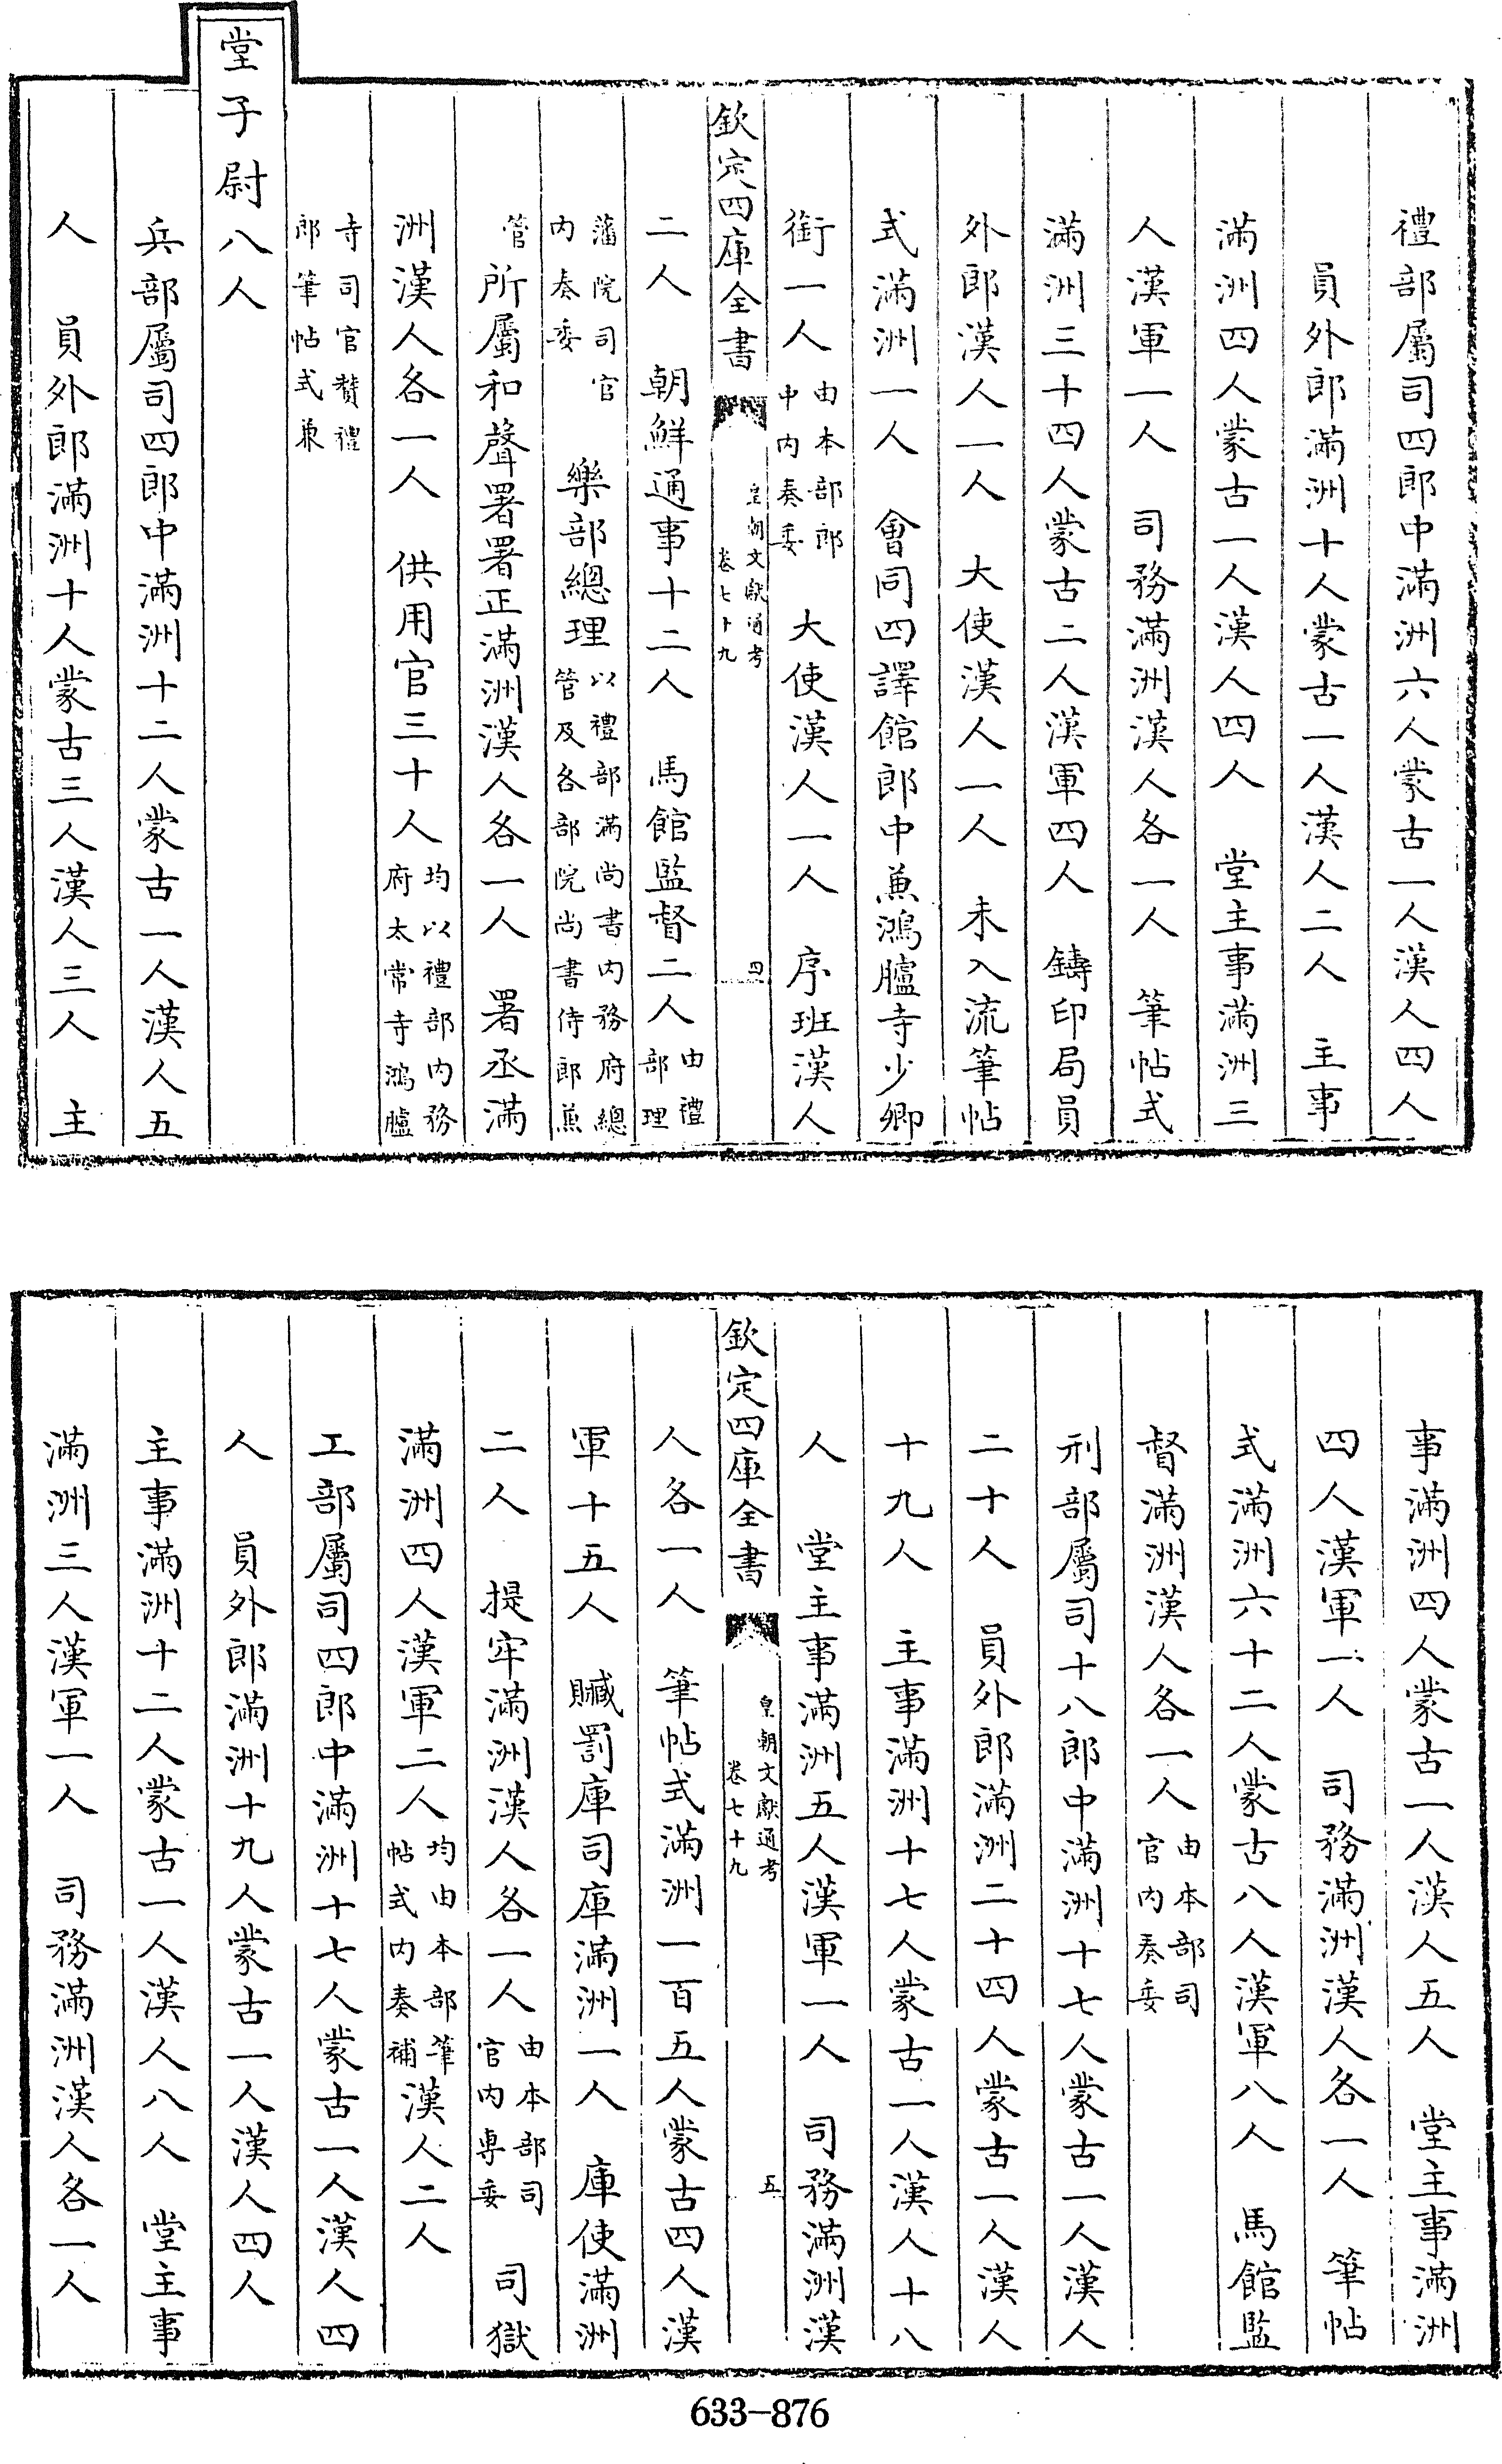 禮部屬司四郎中滿洲六人蒙古一人漢人四人
員外郎滿洲十人蒙古一人漢人二人　主事
滿洲四人蒙古一人漢人四人　堂主事滿洲三
人漢軍一人　司務滿洲漢人各一人　筆帖式
滿洲三十四人蒙古二人漢軍四人　鑄印局員
外郎漢人一人　大使漢人一人　未入流筆帖
式滿洲一人　會同四譯館郎中兼鴻臚寺少卿
銜一人由本部郎中内奏委　大使漢人一人　序班漢人
欽定四庫全書　皇朝文獻通考　卷七十九　四
二人　朝鮮通事十二人　馬館監督二人由禮部理
藩院司官内奏委　樂部總理以禮部滿尚書内務府總管及各部院尚書侍郎兼
管　所屬和聲署署正滿洲漢人各一人　署丞滿
洲漢人各一人　供用官三十人均以禮部内務府太常寺鴻臚
寺司官贊禮郎筆帖式兼
堂子尉八人
兵部屬司四郎中滿洲十二人蒙古一人漢人五
人　員外郎滿洲十人蒙古三人漢人三人　主
事滿洲四人蒙古一人漢人五人　堂主事滿洲
四人漢軍一人　司務滿洲漢人各一人　筆帖
式滿洲六十二人蒙古八人漢軍八人　馬館監
督滿洲漢人各一人由本部司官内奏委
刑部屬司十八郎中滿洲十七人蒙古一人漢人
二十人　員外郎滿洲二十四人蒙古一人漢人
十九人　主事滿洲十七人蒙古一人漢人十八
人　堂主事滿洲五人漢軍一人　司務滿洲漢
欽定四庫全書　皇朝文獻通考　卷七十九　五
人各一人　筆帖式滿洲一百五人蒙古四人漢
軍十五人　贓罰庫司庫滿洲一人　庫使滿洲
二人　提牢滿洲漢人各一人由本部司官内專委　司獄
滿洲四人漢軍二人均由本部筆帖式内奏補漢人二人
工部屬司四郎中滿洲十七人蒙古一人漢人四
人　員外郎滿洲十九人蒙古一人漢人四人
主事滿洲十二人蒙古一人漢人八人　堂主事
滿洲三人漢軍一人　司務滿洲漢人各一人
633-876